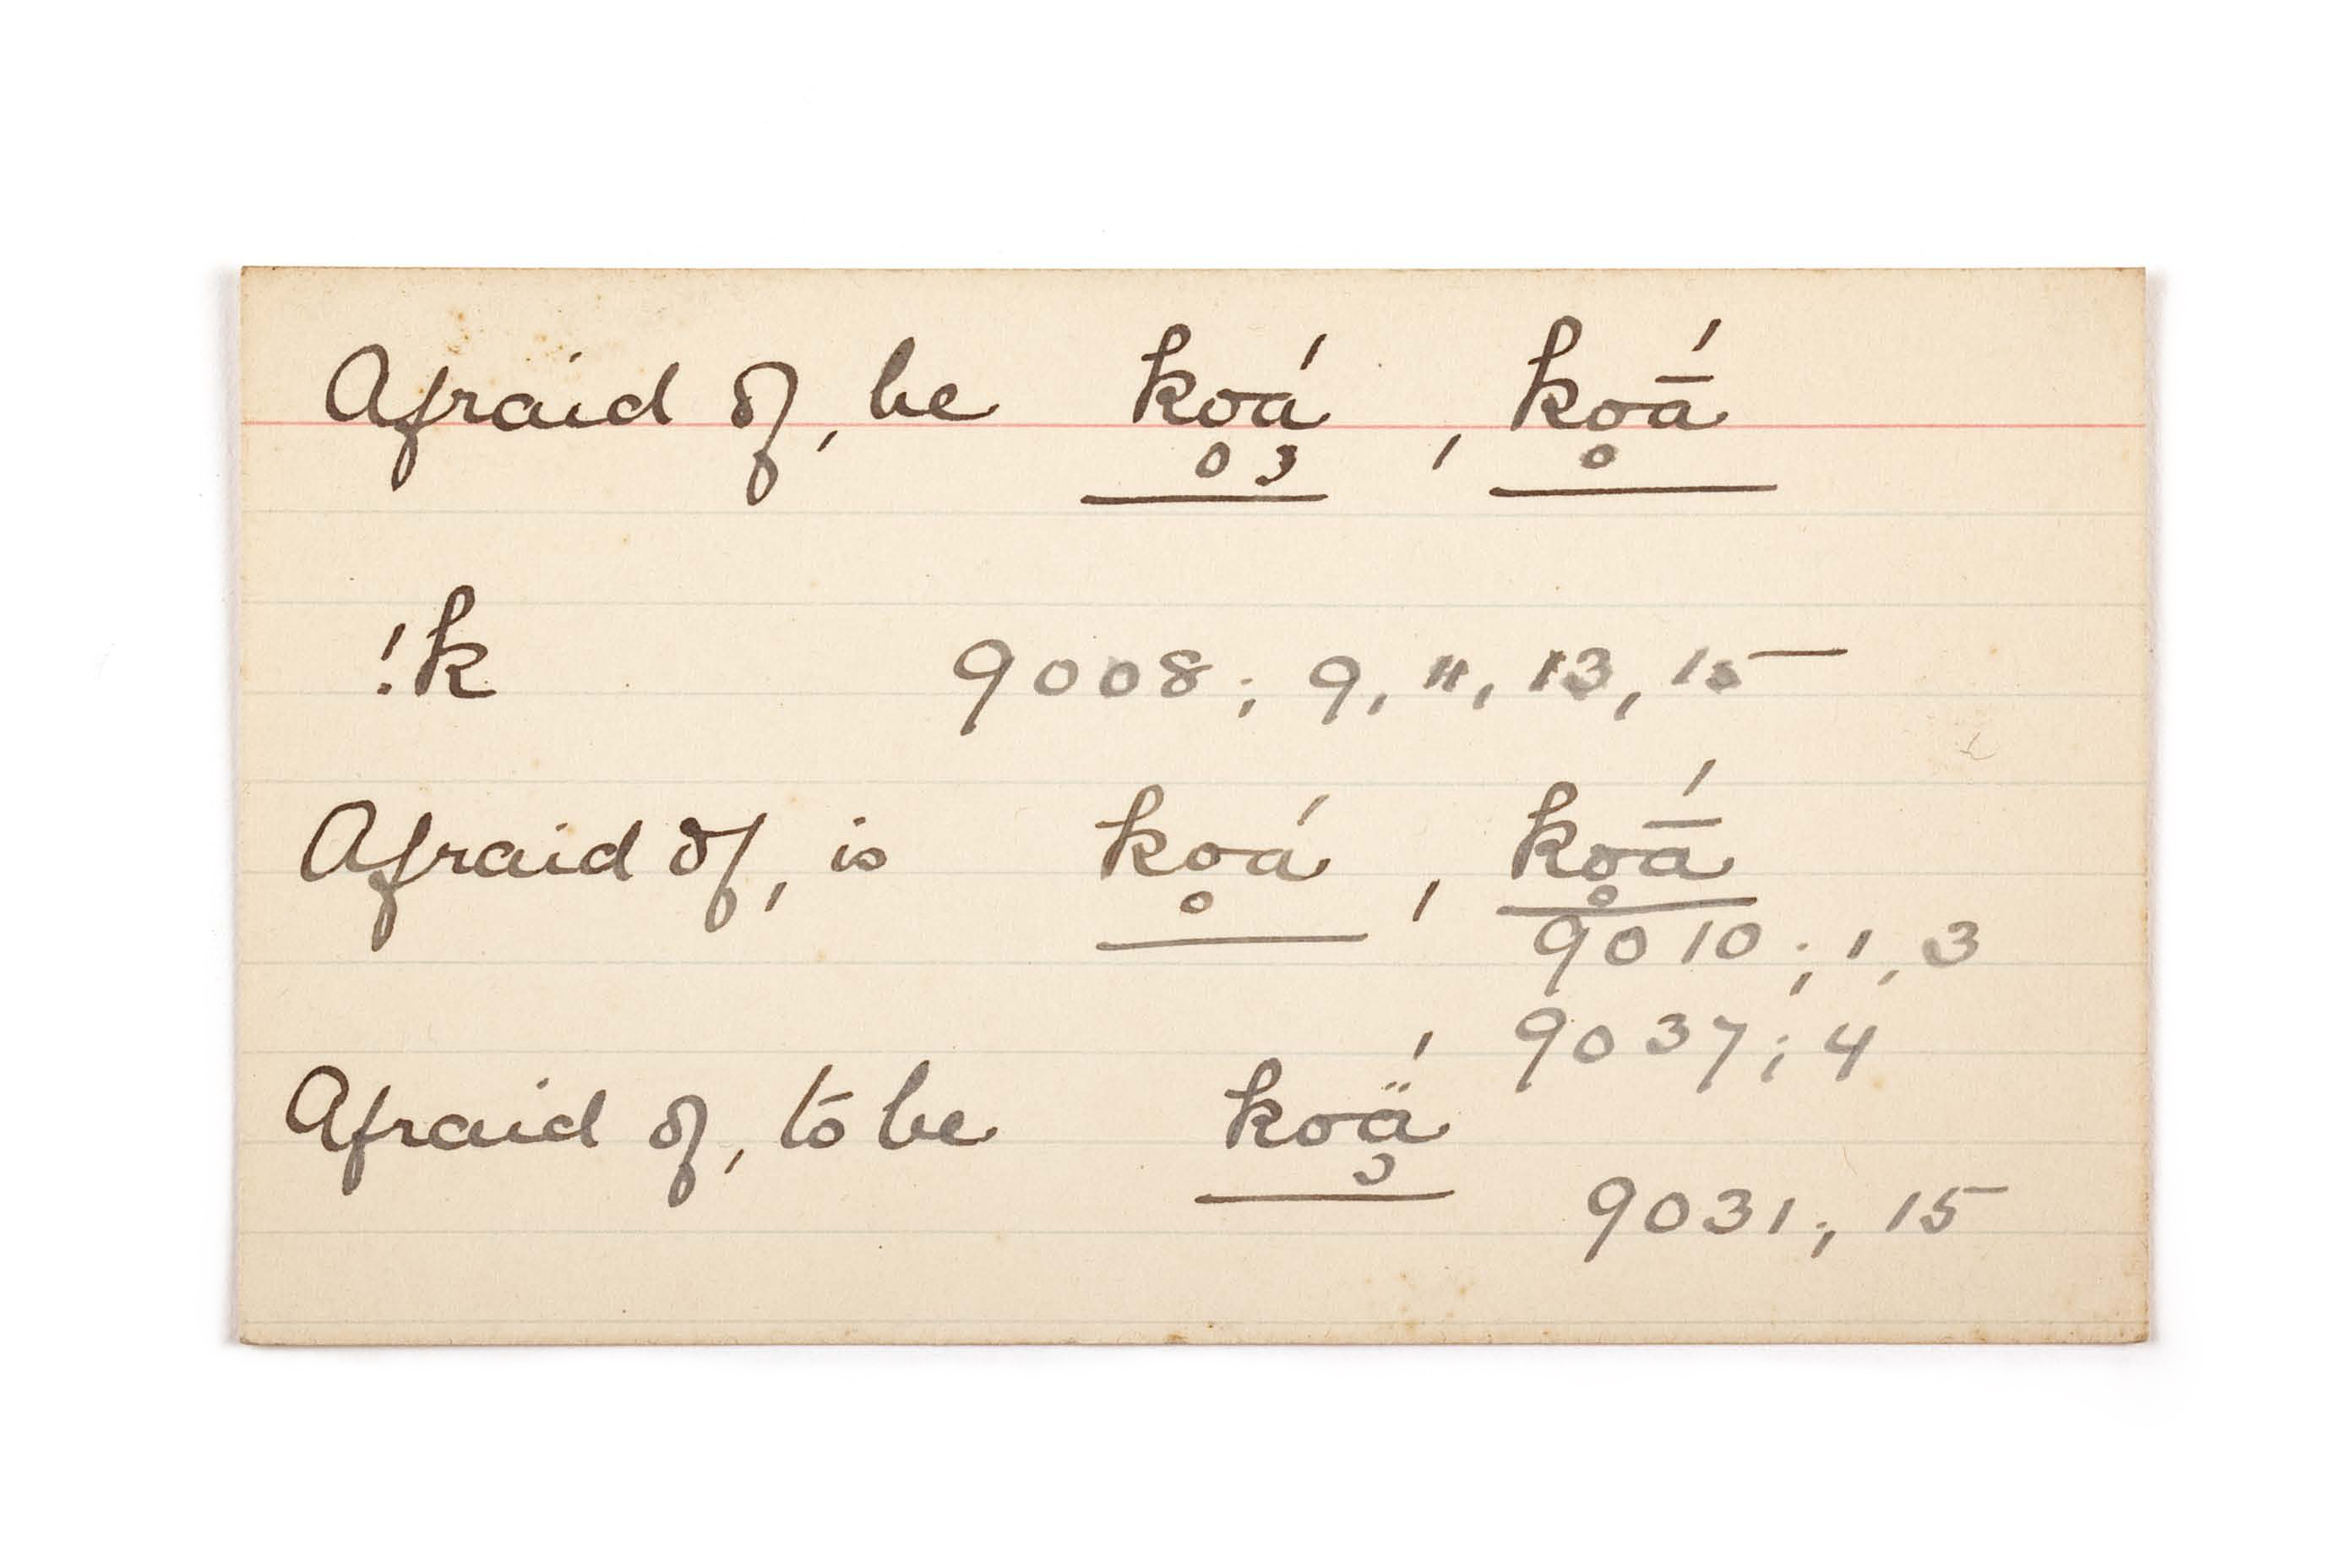 Afraid of, be ko̥á̹, ko̥ā́
!k 9008; 9, 11, 13, 15
Afraid of, is ko̥á, ko̥ā́
9010; 1, 3
9037; 4
Afraid of, to be koä̹́
9031; 15